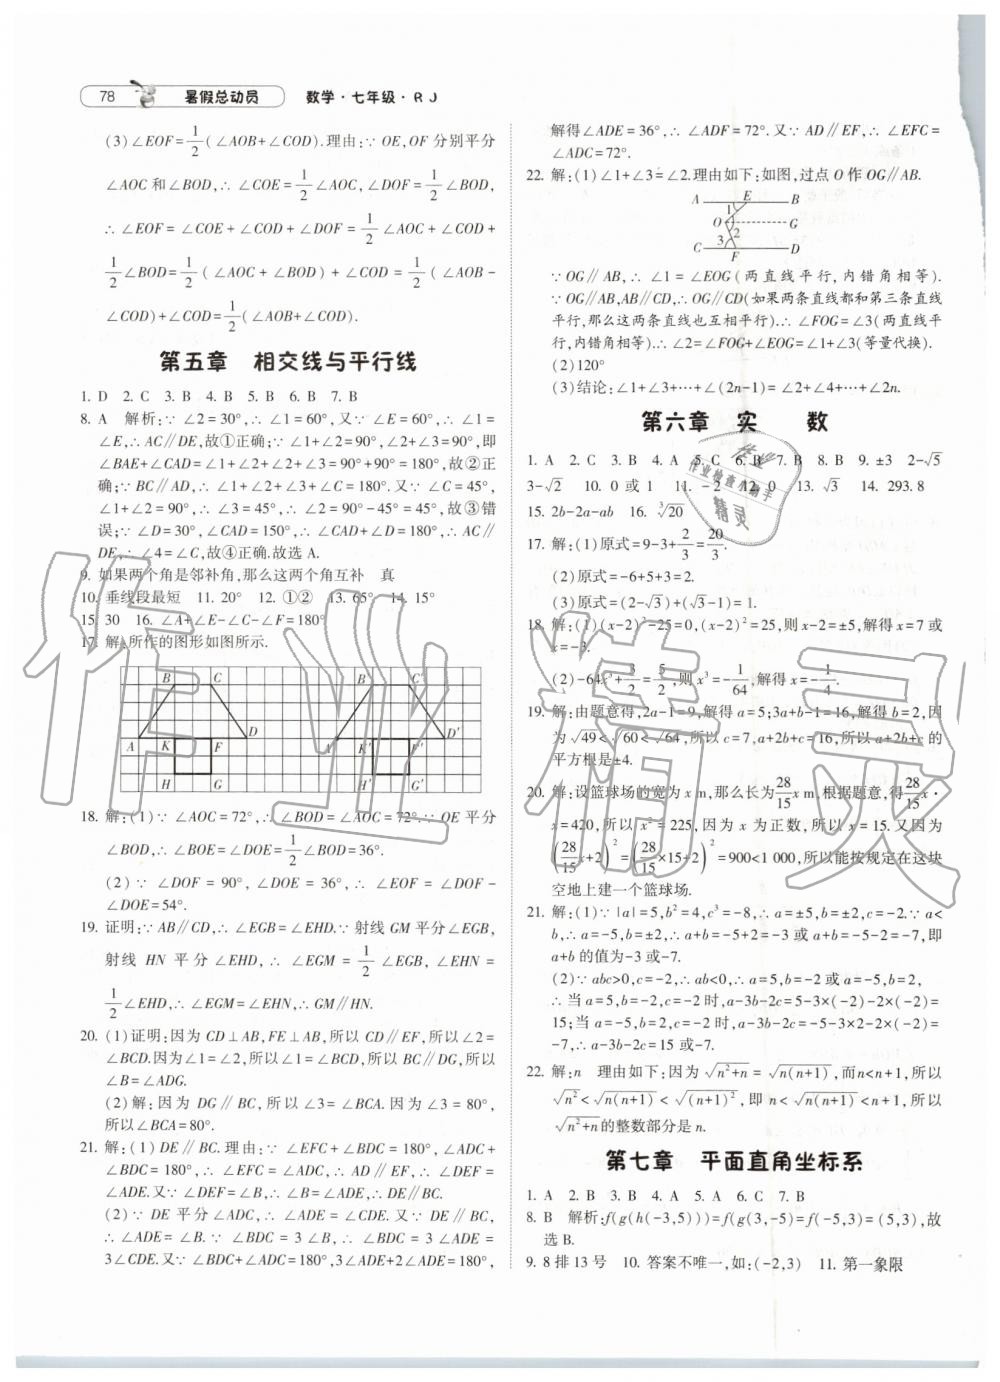 78 暑假总动员 数学·七年级·RJ
(3)∠EOF=1/2(∠AOB+∠COD).理由:∵OE,OF分别平分
∠AOC和∠BOD,∴∠COE=1/2∠AOC,∠DOF=1/2∠BOD,
∴∠EOF=∠COE+∠COD+∠DOF=1/2∠AOC+∠COD+
1/2∠BOD=1/2(∠AOC+∠BOD)+∠COD=1/2(∠AOB-
∠COD)+∠COD=1/2(∠AOB+∠COD).
第五章 相交线与平行线
1. D 2. C 3. B 4. A 5. B 6. B 7. B
8. A 解析:∵∠2=30°,∴∠1=60°,又∵∠E=60°,∴∠1=
∠E,∴AC∥DE,故①正确;∵∠1+∠2=90°,∠2+∠3=90°,即
∠BAE+∠CAD=∠1+∠2+∠2+∠3=90°+90°=180°,故②正
确;∵BC∥AD,∴∠1+∠2+∠3+∠C=180°.又∵∠C=45°,
∠1+∠2=90°,∴∠3=45°,∴∠2=90°-45°=45°,故③错
误;∵∠D=30°,∠CAD=150°,∴∠CAD+∠D=180°,∴AC∥
DE,∴∠4=∠C,故④正确.故选 A.
9. 如果两个角是邻补角,那么这两个角互补 真
10. 垂线段最短 11. 20° 12. ①② 13. 65° 14. 15°
15. 30 16. ∠A+∠E-∠C-∠F=180°
17. 解:所作的图形如图所示.
B C B' C'
A K F D A' K' F' D'
H G H' G'
18. 解:(1)∵∠AOC=72°,∴∠BOD=∠AOC=72°.∵OE平分
∠BOD,∴∠BOE=∠DOE=1/2∠BOD=36°.
(2)∵∠DOF=90°,∠DOE=36°,∴∠EOF=∠DOF-
∠DOE=54°.
19. 证明:∵AB∥CD,∴∠EGB=∠EHD.∵射线GM平分∠EGB,
射线HN平分∠EHD,∴∠EGM=1/2∠EGB,∠EHN=
1/2∠EHD,∴∠EGM=∠EHN,∴GM∥HN.
20. (1)证明:因为CD⊥AB,FE⊥AB,所以CD∥EF,所以∠2=
∠BCD.因为∠1=∠2,所以∠1=∠BCD,所以BC∥DG,所以
∠B=∠ADG.
(2)解:因为DG∥BC,所以∠3=∠BCA.因为∠3=80°,
所以∠BCA=80°.
21. 解:(1)DE∥BC.理由:∵∠EFC+∠BDC=180°,∠ADC+
∠BDC=180°,∴∠EFC=∠ADC,∴AD∥EF,∴∠DEF=
∠ADE.又∵∠DEF=∠B,∴∠B=∠ADE,∴DE∥BC.
(2)∵DE平分∠ADC,∴∠ADE=∠CDE.又∵DE∥BC,
∴∠ADE=∠B,∴∠BDC=3∠B,∴∠BDC=3∠ADE=
3∠CDE.又∵∠BDC+∠ADC=180°,3∠ADE+2∠ADE=180°,
解得∠ADE=36°,∴∠ADF=72°.又∵AD∥EF,∴∠EFC=
∠ADC=72°.
22. 解:(1)∠1+∠3=∠2.理由如下:如图,过点O作OG∥AB.
A E B
1
O G
2
3
C F D
∵OG∥AB,∴∠1=∠EOG(两直线平行,内错角相等).
∵OG∥AB,AB∥CD,∴OG∥CD(如果两条直线都和第三条直线
平行,那么这两条直线也互相平行).∴∠FOG=∠3(两直线平
行,内错角相等).∴∠2=∠FOG+∠EOG=∠1+∠3(等量代换).
(2)120°
(3)结论:∠1+∠3+…+∠(2n-1)=∠2+∠4+…+∠2n.
第六章 实 数
1. A 2. C 3. B 4. A 5. C 6. B 7. B 8. B 9. ±3 2-√5
3-√2 10. 0或1 11. -2 12. 0 13. √3 14. 293.8
15. 2b-2a-ab 16. ∛20
17. 解:(1)原式=9-3+2/3=20/3.
(2)原式=-6+5+3=2.
(3)原式=(2-√3)+(√3-1)=1.
18. 解:(1)(x-2)²-25=0,(x-2)²=25,则x-2=±5,解得x=7或
x=-3.
(2)-64x³+3/2=5/2,则x³=-1/64,解得x=-1/4.
19. 解:由题意得,2a-1=9,解得a=5;3a+b-1=16,解得b=2,因
为√49<√60<√64,所以c=7,a+2b+c=16,所以a+2b+c的
平方根是±4.
20. 解:设篮球场的宽为x m,那么长为28/15x m.根据题意,得28/15x·
x=420,所以x²=225,因为x为正数,所以x=15.又因为
(28/15x+2)²=(28/15×15+2)²=900<1 000,所以能按规定在这块
空地上建一个篮球场.
21. 解:(1)∵|a|=5,b²=4,c³=-8,∴a=±5,b=±2,c=-2.∵a<
b,∴a=-5,b=±2,∴a+b=-5+2=-3或a+b=-5-2=-7,即
a+b的值为-3或-7.
(2)∵abc>0,c=-2,∴ab<0,∴a=5,b=-2或a=-5,b=2,
∴当a=5,b=-2,c=-2时,a-3b-2c=5-3×(-2)-2×(-2)=
15;当a=-5,b=2,c=-2时,a-3b-2c=-5-3×2-2×(-2)=
-7,∴a-3b-2c=15或-7.
22. 解:n 理由如下:因为√(n²+n)=√(n(n+1)),而n<n+1,所以
√n²<√(n(n+1))<√((n+1)²),即n<√(n(n+1))<n+1,所以
√(n²+n)的整数部分是n.
第七章 平面直角坐标系
1. A 2. B 3. B 4. A 5. A 6. C 7. B
8. B 解析:f(g(h(-3,5)))=f(g(3,-5)=f(-5,3)=(5,3),故
选 B.
9. 8排13号 10. 答案不唯一,如:(-2,3) 11. 第一象限
作业精灵
作业
作业检查小助手
精灵